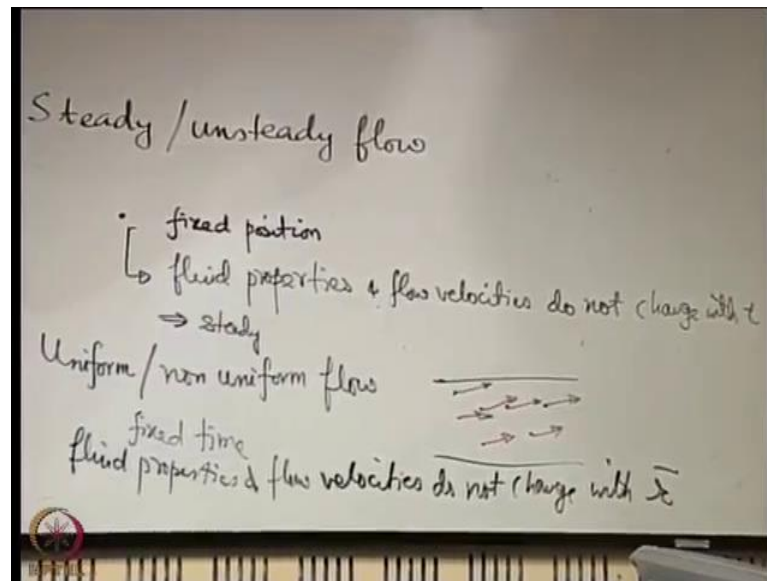 Steady / unsteady flow
fixed position
fluid properties & flow velocities do not change with t
⇒ steady
Uniform / non uniform flow
fixed time
fluid properties & flow velocities do not change with x̄